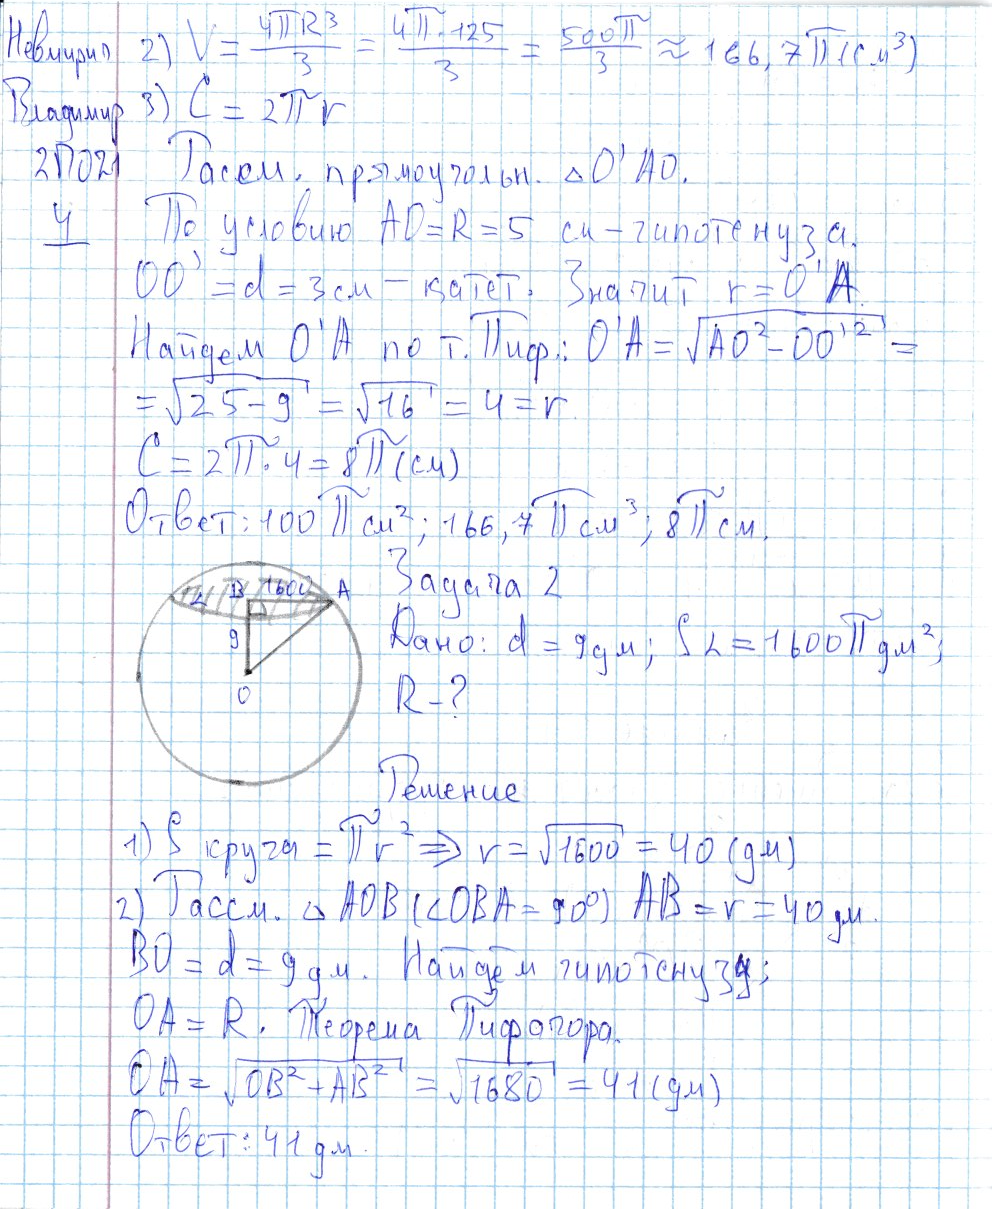 Невмирип 2) V = 4ПR³/3 = 4П·125/3 = 500П/3 ≈ 166,7П (см³)
Владимир 3) C = 2Пr
2П021 Рассм. прямоугольн. △O'AO.
4 По условию AO=R=5 см – гипотенуза.
OO' = d = 3см – катет. Значит r = O'A.
Найдем O'A по т. Пиф.: O'A = √(AO²-OO'²) =
= √(25-9) = √16 = 4 = r
C = 2П·4 = 8П(см)
Ответ: 100 Псм²; 166,7Псм³; 8Псм.
Задача 2
Дано: d = 9дм; S L = 1600П дм²;
R-?
L B 1600 A
9
O
Решение
1) S круга = Пr² => r = √1600 = 40 (дм)
2) Рассм. △ AOB (<OBA = 90°) AB = r = 40дм.
BO = d = 9 дм. Найдём гипотенузу;
OA = R. Теорема Пифагора.
OA = √(OB²+AB²) = √1680 = 41 (дм)
Ответ: 41 дм.